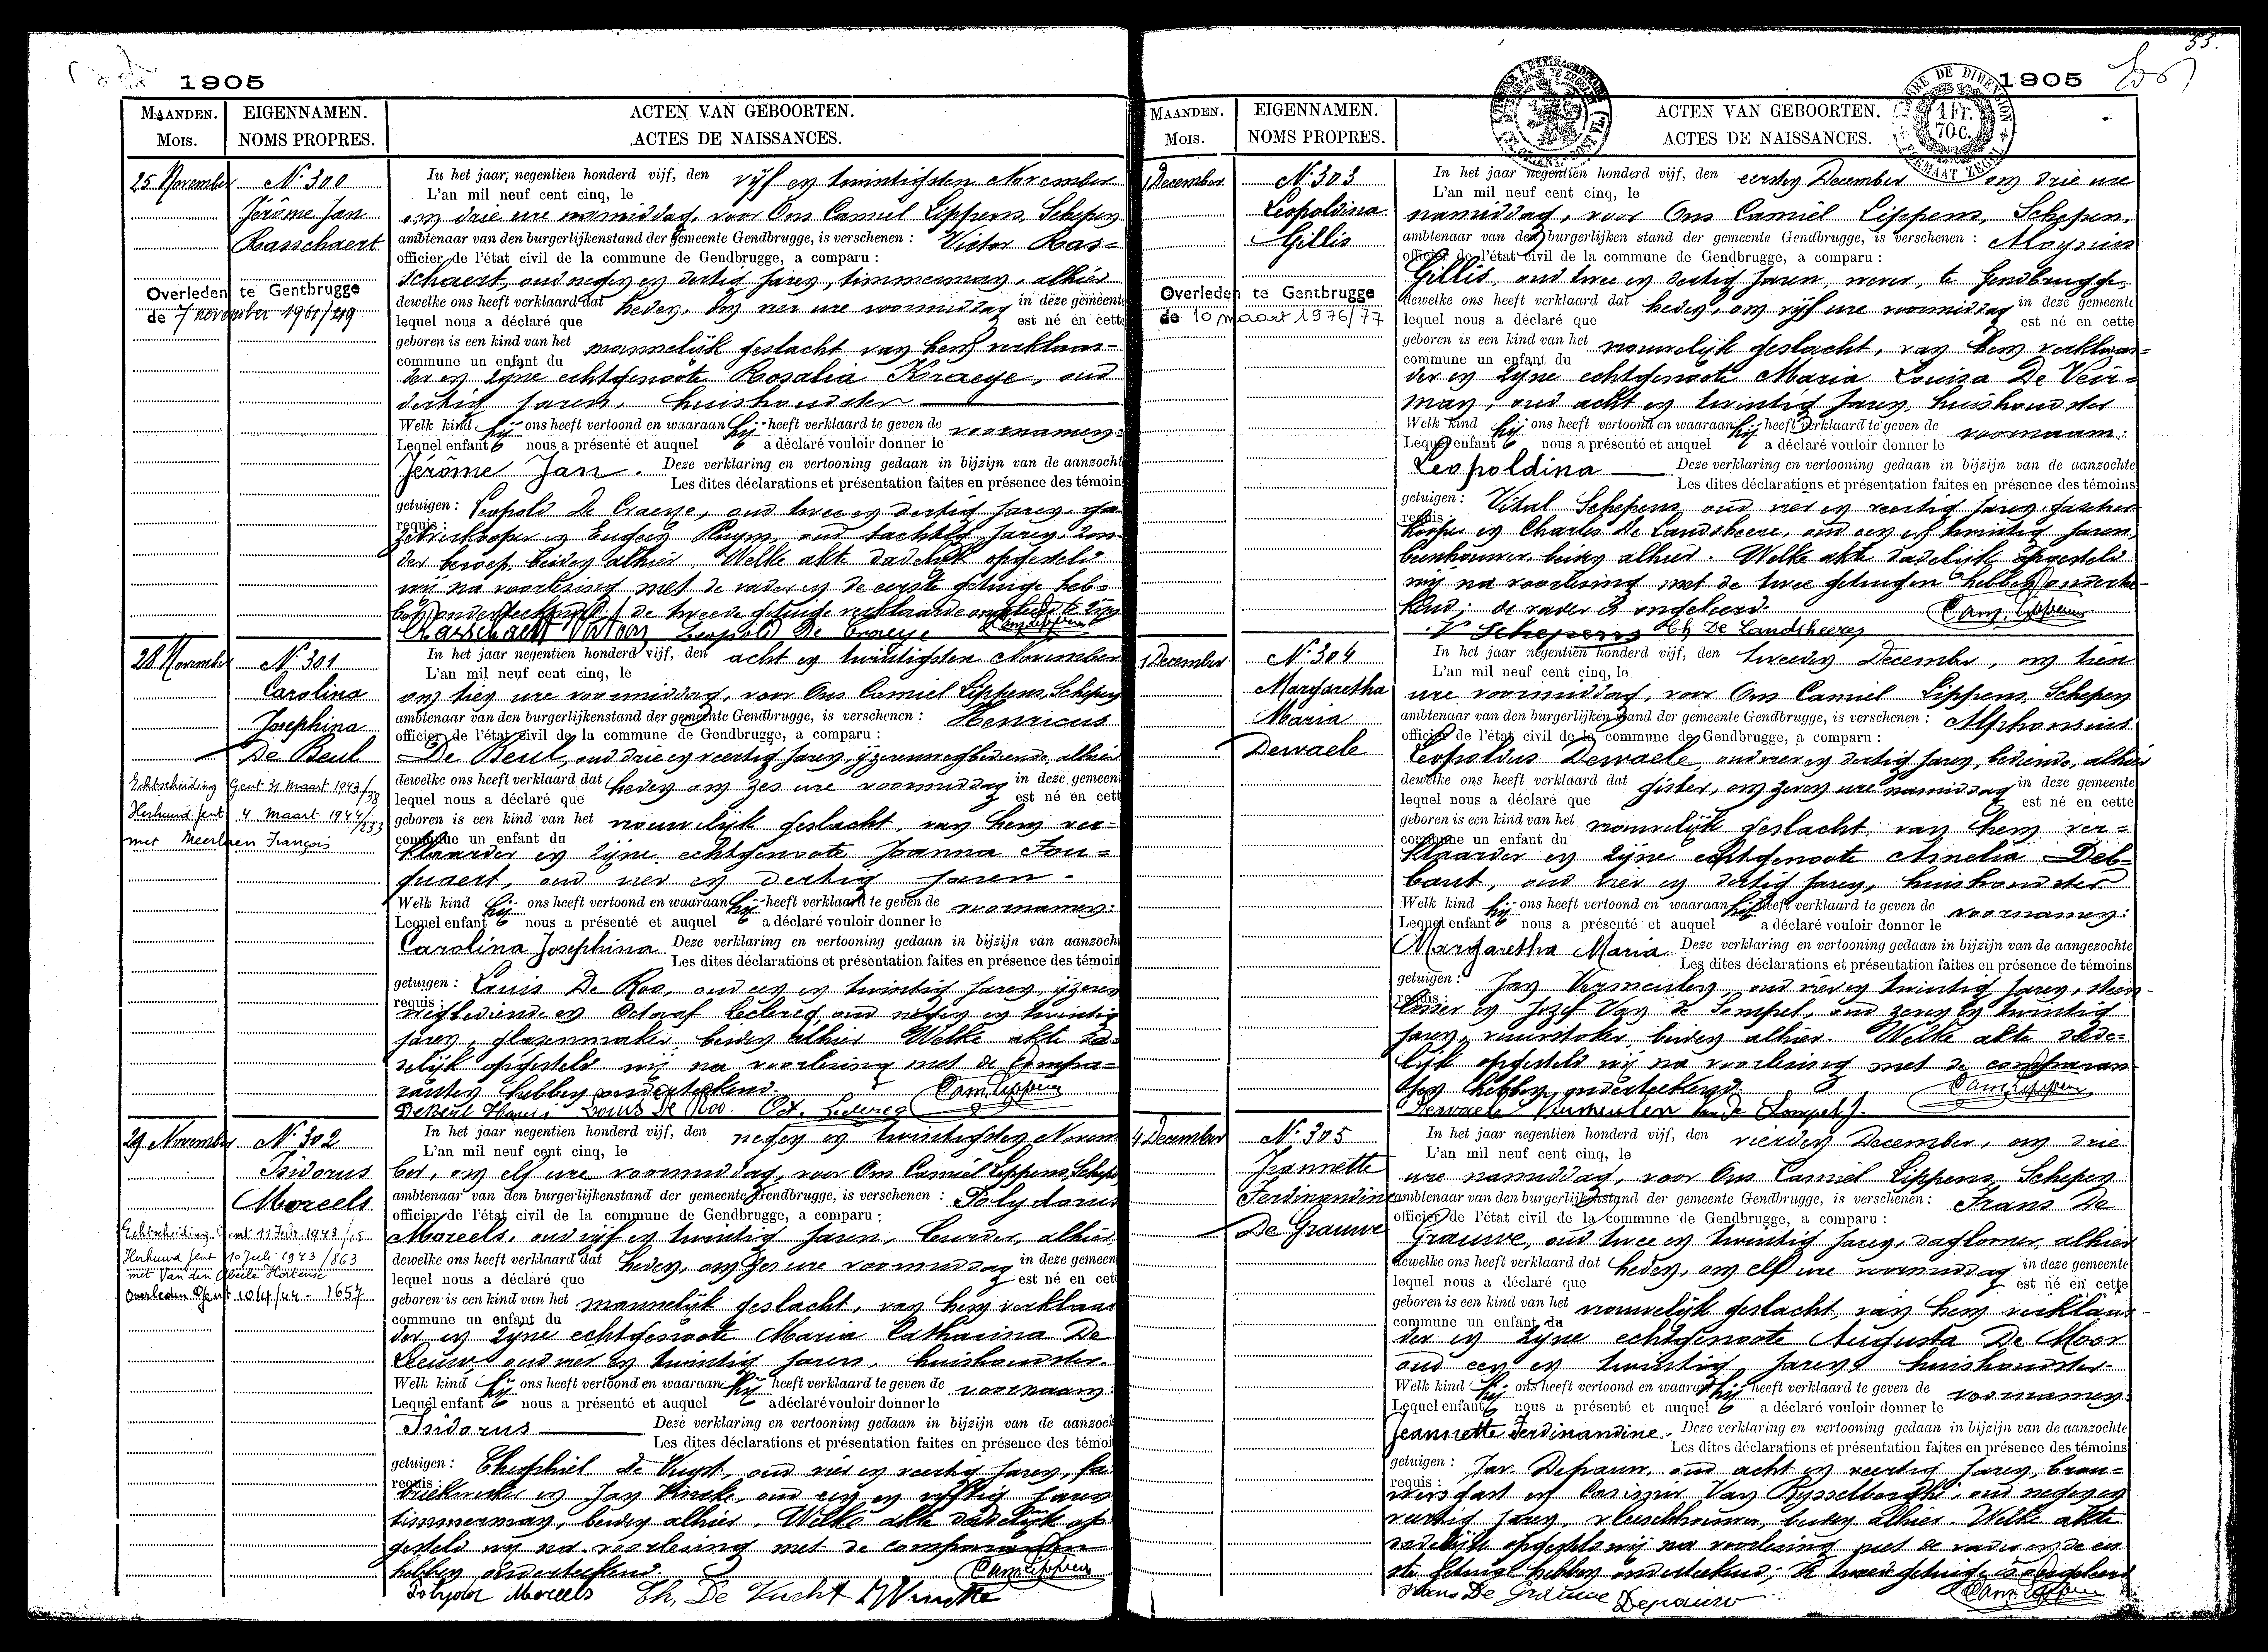 1905
MAANDEN. EIGENNAMEN. ACTEN VAN GEBOORTEN.
Mois. NOMS PROPRES. ACTES DE NAISSANCES.
25 November
N° 300
Jérôme Jan
Rasschaert
Overleden te Gentbrugge
de 7 november 1961/219
In het jaar negentien honderd vijf, den vijf en twintigsten November
L'an mil neuf cent cinq, le
om drie ure namiddag, voor Ons Camiel Lippens, Schepen
ambtenaar van den burgerlijkenstand der gemeente Gendbrugge, is verschenen : Victor Ras-
officier de l'état civil de la commune de Gendbrugge, a comparu :
schaert, oud negen en dertig jaren, timmerman, alhier
dewelke ons heeft verklaard dat heden, om vier ure voormiddag in deze gemeente
lequel nous a déclaré que est né en cette
geboren is een kind van het mannelijk geslacht van hem verklaar-
commune un enfant du
der en zijne echtgenoote Rosalia Kraeye, oud
dertig jaren, huishoudster
Welk kind hij ons heeft vertoond en waaraan hij heeft verklaard te geven de voornamen:
Lequel enfant nous a présenté et auquel a déclaré vouloir donner le
Jérôme Jan. Deze verklaring en vertooning gedaan in bijzijn van de aanzocht
Les dites déclarations et présentation faites en présence des témoin
getuigen : Leopold De Craeye, oud twee en dertig jaren,
requis :
en Eugeen Ruym, oud tachtig jaren, zon-
der beroep, beiden alhier. Welke akte dadelijk opgesteld
wij na voorlezing met de vader en de eerste getuige heb-
ben onderteekend, de tweede getuige verklaarde
Rasschaert Victor Leopold De Craeye Cam. Lippens
28 November
N° 301
Carolina
Josephina
De Beul
Echtscheiding Gent 31 Maart 1943/38
Herhuwd Gent 4 Maart 1944/233
met Meerlaen François
In het jaar negentien honderd vijf, den acht en twintigsten November
L'an mil neuf cent cinq, le
om tien ure voormiddag, voor Ons Camiel Lippens, Schepen
ambtenaar van den burgerlijkenstand der gemeente Gendbrugge, is verschenen : Henricus
officier de l'état civil de la commune de Gendbrugge, a comparu :
De Beul, oud drie en veertig jaren, ijzerenwegbediende, alhier
dewelke ons heeft verklaard dat heden om zes ure voormiddag in deze gemeen
lequel nous a déclaré que est né en cett
geboren is een kind van het vrouwelijk geslacht, van hem ver-
commune un enfant du
klaarder en zijne echtgenoote Joanna Fou-
quaert, oud vier en dertig jaren.
Welk kind hij ons heeft vertoond en waaraan hij heeft verklaard te geven de voornamen:
Lequel enfant nous a présenté et auquel a déclaré vouloir donner le
Carolina Josephina Deze verklaring en vertooning gedaan in bijzijn van aanzoch
Les dites déclarations et présentation faites en présence des témoin
getuigen : Louis De Roo, oud een en twintig jaren, ijzeren
requis :
wegbediende en Octaaf Leclercq, oud negen en twintig
jaren, glazenmaker, beiden alhier Welke akte da-
delijk opgesteld wij na voorlezing met de compa-
ranten hebben onderteekend.
De Beul Henri Louis De Roo. Oct. Leclercq Cam. Lippens
29 November
N° 302
Isidorus
Moreels
Echtscheiding Gent 11 1943/15
Herhuwd Gent 10 Juli 1943/863
met Van den Abeele Hortense
Overleden Gent 10/4/44 - 1657
In het jaar negentien honderd vijf, den negen en twintigsten Novem
L'an mil neuf cent cinq, le
ber, om elf ure voormiddag, voor Ons Camiel Lippens, Schepe
ambtenaar van den burgerlijkenstand der gemeente Gendbrugge, is verschenen : Polydorus
officier de l'état civil de la commune de Gendbrugge, a comparu :
Moreels, oud vijf en twintig jaren, alhier
dewelke ons heeft verklaard dat heden, om zes ure voormiddag in deze gemeen
lequel nous a déclaré que est né en cet
geboren is een kind van het mannelijk geslacht, van hem verklaar
commune un enfant du
der en zijne echtgenoote Maria Catharina De
Leeuw, oud vier en twintig jaren, huishoudster.
Welk kind hij ons heeft vertoond en waaraan hij heeft verklaard te geven de voornaam:
Lequel enfant nous a présenté et auquel a déclaré vouloir donner le
Isidorus Deze verklaring en vertooning gedaan in bijzijn van de aanzoch
Les dites déclarations et présentation faites en présence des témoi
getuigen : Theophiel de Vucht, oud vier en veertig jaren, fa
requis :
en Jan Vincke, oud een en vijftig jaren
timmerman, beiden alhier. Welke akte dadelijk op
gesteld wij na voorlezing met de comparanten
hebben onderteekend
Polydor Moreels Th. De Vucht J Vincke Cam. Lippens
55.
1905
TIMBRE DE DIMENSION
1 Fr. 70 C.
FORMAAT ZEGEL
MAANDEN. EIGENNAMEN. ACTEN VAN GEBOORTEN.
Mois. NOMS PROPRES. ACTES DE NAISSANCES.
1 December
N° 303
Leopoldina
Gillis
Overleden te Gentbrugge
de 10 maart 1976/77
In het jaar negentien honderd vijf, den eersten December om drie ure
L'an mil neuf cent cinq, le
namiddag, voor Ons Camiël Lippens, Schepen,
ambtenaar van den burgerlijken stand der gemeente Gendbrugge, is verschenen : Aloysius
officier de l'état civil de la commune de Gendbrugge, a comparu :
Gillis, oud twee en dertig jaren, wever, te Gendbrugge,
dewelke ons heeft verklaard dat heden, om vijf ure voormiddag in deze gemeente
lequel nous a déclaré que est né en cette
geboren is een kind van het vrouwelijk geslacht, van hem verklaar-
commune un enfant du
der en zijne echtgenoote Maria Louisa De Veir-
man, oud acht en twintig jaren huishoudster
Welk kind hij ons heeft vertoond en waaraan hij heeft verklaard te geven de voornaam:
Lequel enfant nous a présenté et auquel a déclaré vouloir donner le
Leopoldina Deze verklaring en vertooning gedaan in bijzijn van de aanzochte
Les dites déclarations et présentation faites en présence des témoins
getuigen : Vital Schepens, oud vier en veertig jaren,
requis :
en Charles De Landsheere, oud een en twintig jaren,
beenhouwer, beiden alhier. Welke akte dadelijk opgesteld
wij na voorlezing met de twee getuigen hebben onderte-
kend; de vader is ongeleerd. Cam. Lippens
V Schepens Ch De Landsheere
1 December
N° 304
Margaretha
Maria
Dewaele
In het jaar negentien honderd vijf, den tweeden December, om tien
L'an mil neuf cent cinq, le
ure voormiddag, voor Ons Camiel Lippens Schepen
ambtenaar van den burgerlijken stand der gemeente Gendbrugge, is verschenen : Alphonsius
officier de l'état civil de la commune de Gendbrugge, a comparu :
Leopoldus Dewaele, oud vier en dertig jaren, bediende, alhier
dewelke ons heeft verklaard dat gister, om zeven ure namiddag in deze gemeente
lequel nous a déclaré que est né en cette
geboren is een kind van het vrouwelijk geslacht, van hem ver-
commune un enfant du
klaarder en zijne echtgenoote Amelia Deb-
baut, oud vier en dertig jaren, huishoudster
Welk kind hij ons heeft vertoond en waaraan hij heeft verklaard te geven de voornamen:
Lequel enfant nous a présenté et auquel a déclaré vouloir donner le
Margaretha Maria. Deze verklaring en vertooning gedaan in bijzijn van de aangezochte
Les dites déclarations et présentation faites en présence de témoins
getuigen : Jan Vermeulen, oud vier en twintig jaren, steen-
requis :
losser en Jozef Van de Sompel, oud zeven en twintig
jaren, vuurstoker, beiden alhier. Welke akte dade-
lijk opgesteld wij na voorlezing met de comparan-
ten hebben onderteekend. Cam. Lippens
Dewaele Vermeulen Van de Sompel J.
4 December
N° 305
Jeannette
Ferdinandine
De Grauwe
In het jaar negentien honderd vijf, den vierden December, om drie
L'an mil neuf cent cinq, le
ure namiddag, voor Ons Camiel Lippens Schepen
ambtenaar van den burgerlijkenstand der gemeente Gendbrugge, is verschenen : Frans De
officier de l'état civil de la commune de Gendbrugge, a comparu :
Grauwe, oud twee en twintig jaren, daglooner, alhier
dewelke ons heeft verklaard dat heden, om elf ure voormiddag in deze gemeente
lequel nous a déclaré que est né en cette
geboren is een kind van het vrouwelijk geslacht, van hem verklaar-
commune un enfant du
der en zijne echtgenoote Augusta De Moor
oud een en twintig jaren huishoudster.
Welk kind hij ons heeft vertoond en waaraan hij heeft verklaard te geven de voornamen
Lequel enfant nous a présenté et auquel a déclaré vouloir donner le
Jeannette Ferdinandine. Deze verklaring en vertooning gedaan in bijzijn van de aanzochte
Les dites déclarations et présentation faites en présence des témoins
getuigen : Jan Depauw, oud acht en veertig jaren, brou-
requis :
wersgast en Casimir Van Rysselberghe, oud negen en
veertig jaren, vleeschhouwer, beiden alhier. Welke akte
dadelijk opgesteld wij na voorlezing met de vader en de eer
ste getuige hebben onderteekend; de tweede getuige is ongeleerd
Frans De Grauwe Depauw Cam. Lippens